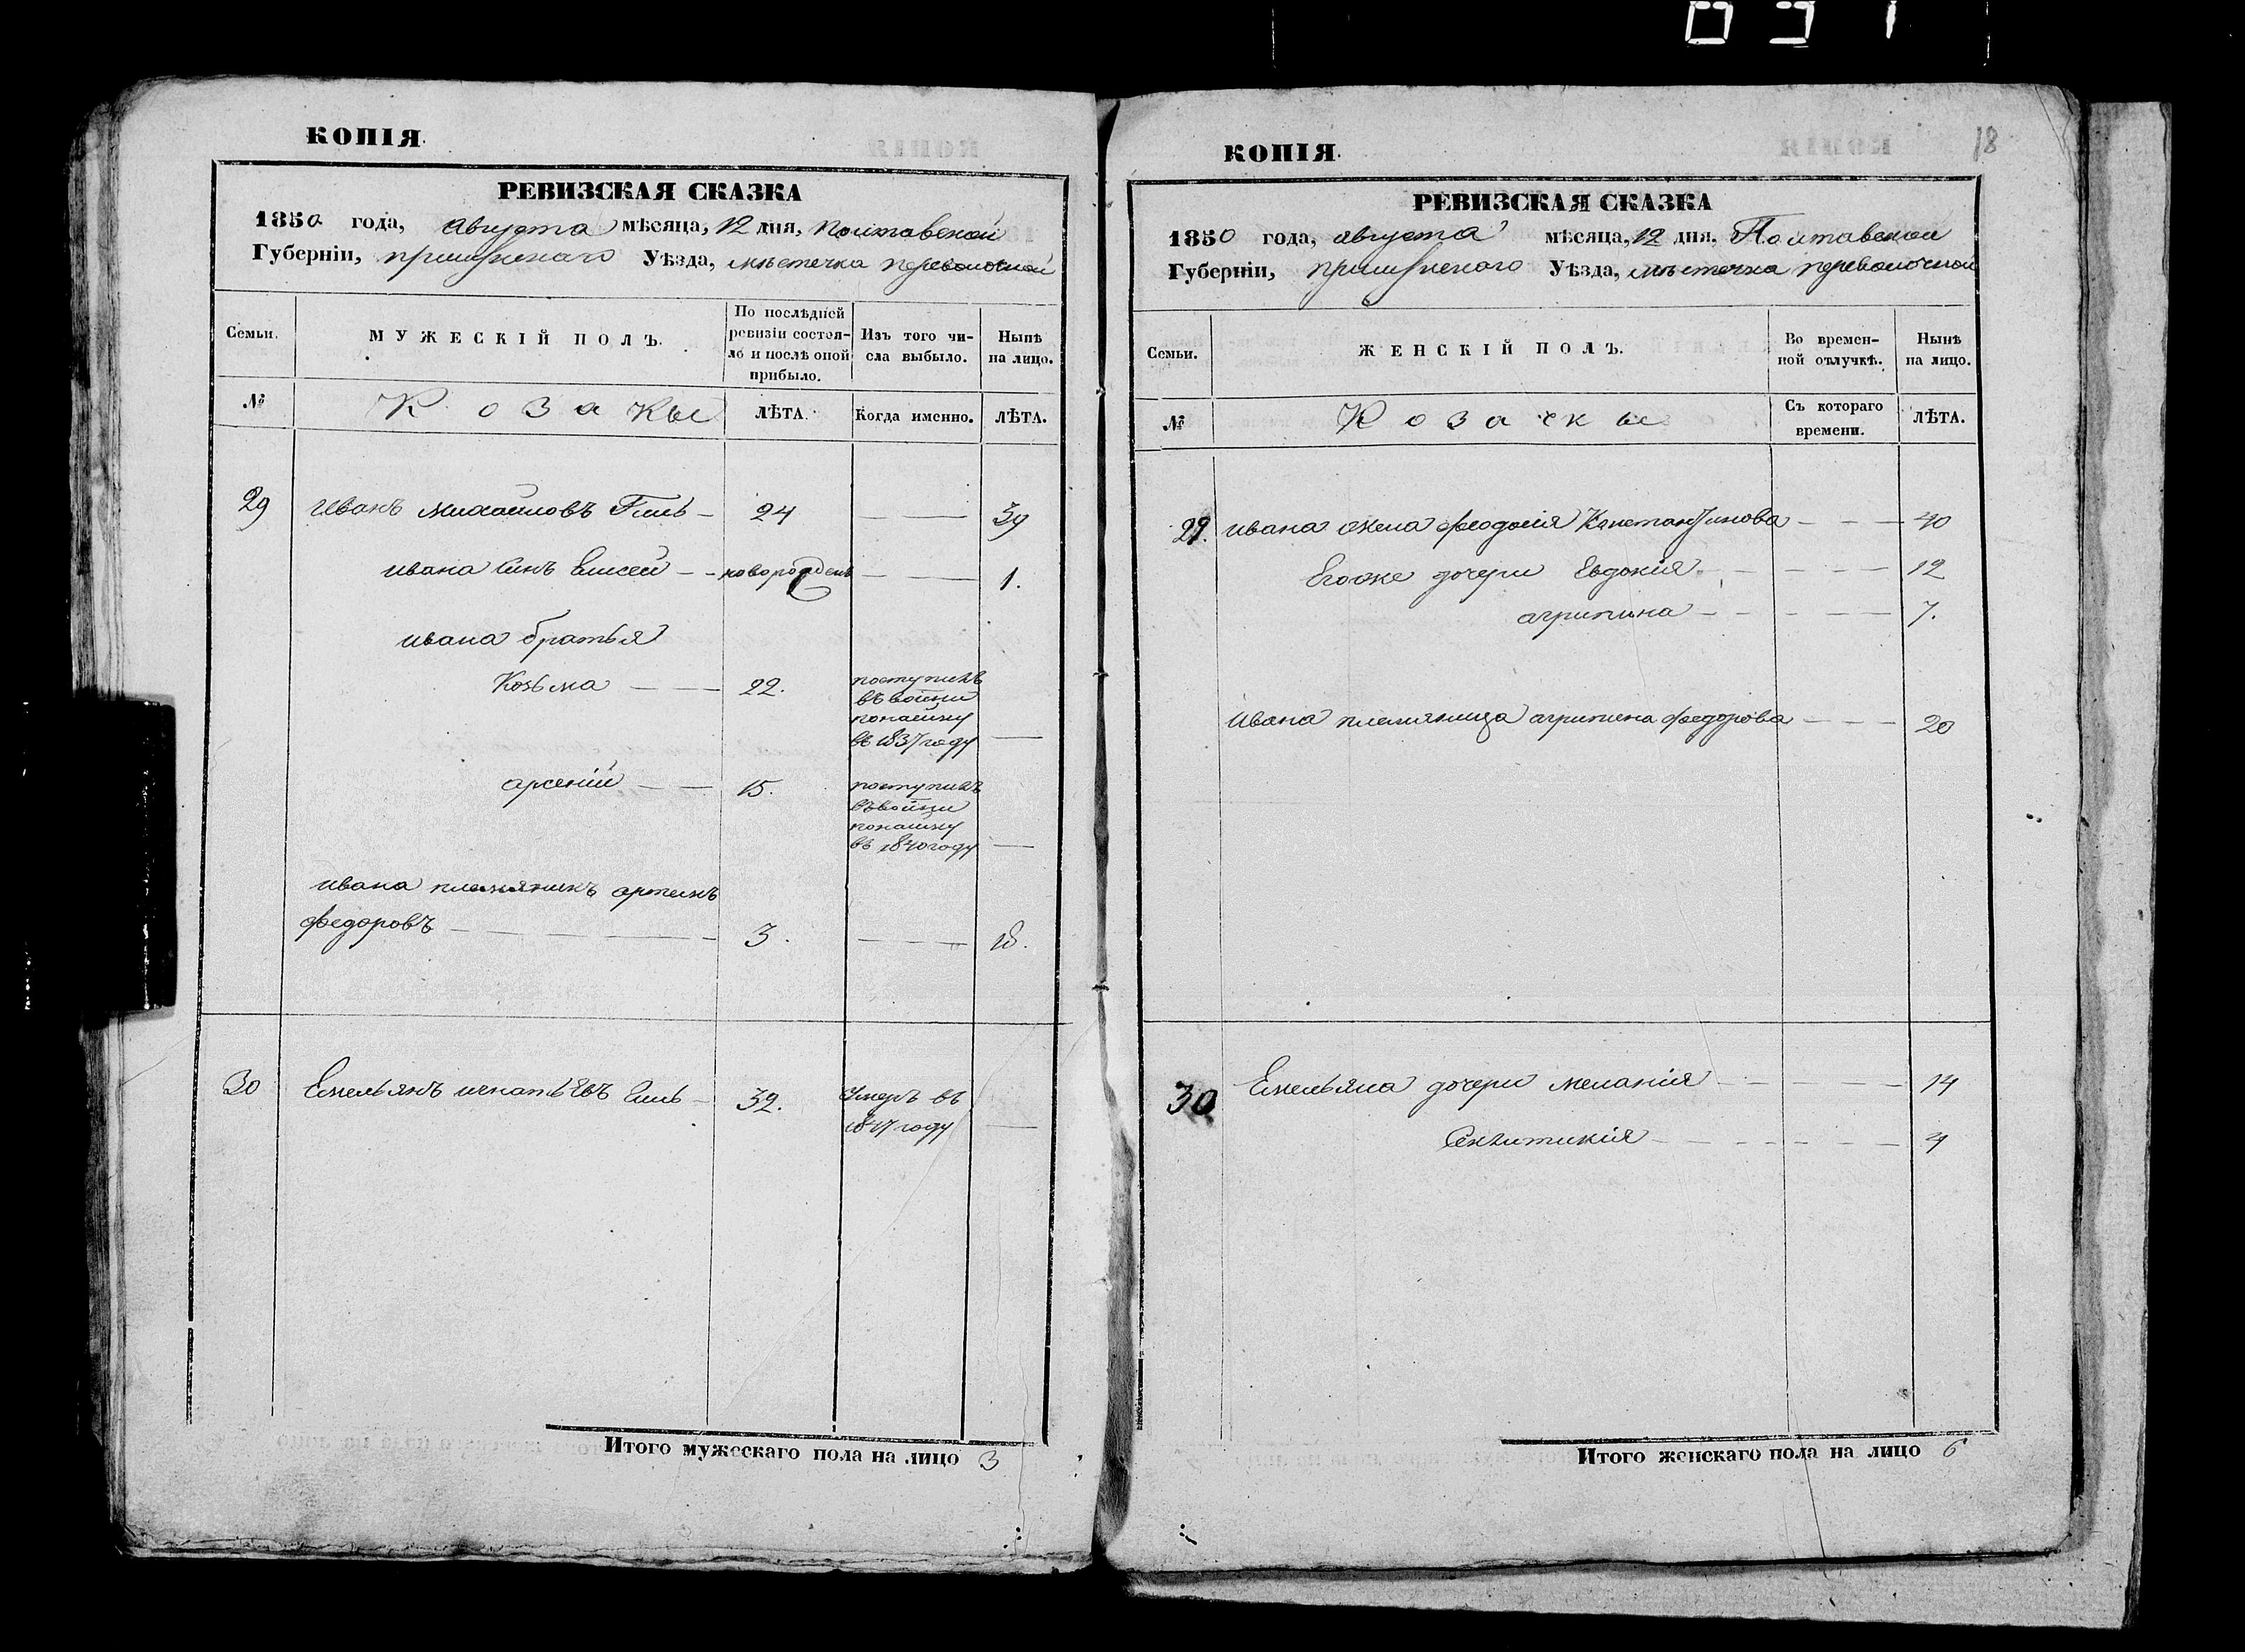 КОПІЯ.
РЕВИЗСКАЯ СКАЗКА
1850 года, августа мѣсяца, 12 дня, Полтавской
Губерніи, прилуцкаго Уѣзда, мѣстечка переволочной
Семьи. МУЖЕСКІЙ ПОЛЪ. По послѣдней ревизіи состоя-ло и послѣ оной прибыло. Изъ того чи-сла выбыло. Нынѣ на лицо.
№ Козакы ЛѢТА. Когда именно. ЛѢТА.
29 Иванъ михайловъ — 24 — 39
ивана синъ Елисей — новорожденъ — 1.
ивана братья
Козьма — 22. поступилъ
въ войни
понашку
въ 1837 году —
арсеній — 15. поступилъ
въ войни
понашку
въ 1840 году —
ивана племяникъ артемъ
федоровъ — 3. — 18.
30 Емельянъ игнатьевъ — 32. Умеръ въ
1847 году —
Итого мужескаго пола на лицо 3
18
КОПІЯ.
РЕВИЗСКАЯ СКАЗКА
1850 года, августа мѣсяца, 12 дня, Полтавской
Губерніи, прилуцкого Уѣзда, мѣстечка переволочной
Семьи. ЖЕНСКІЙ ПОЛЪ. Во времен-ной отлучкѣ. Нынѣ на лицо.
№ Козачкы Съ котораго времени. ЛѢТА.
29. ивана жена феодосія Константинова — 40
Егоже дочери Евдокія — 12
агрипина — 7.
Ивана племяница агрипена федорова — 20
30 Емельяна дочери меланія — 14
Сенклитикія — 4
Итого женскаго пола на лицо 6